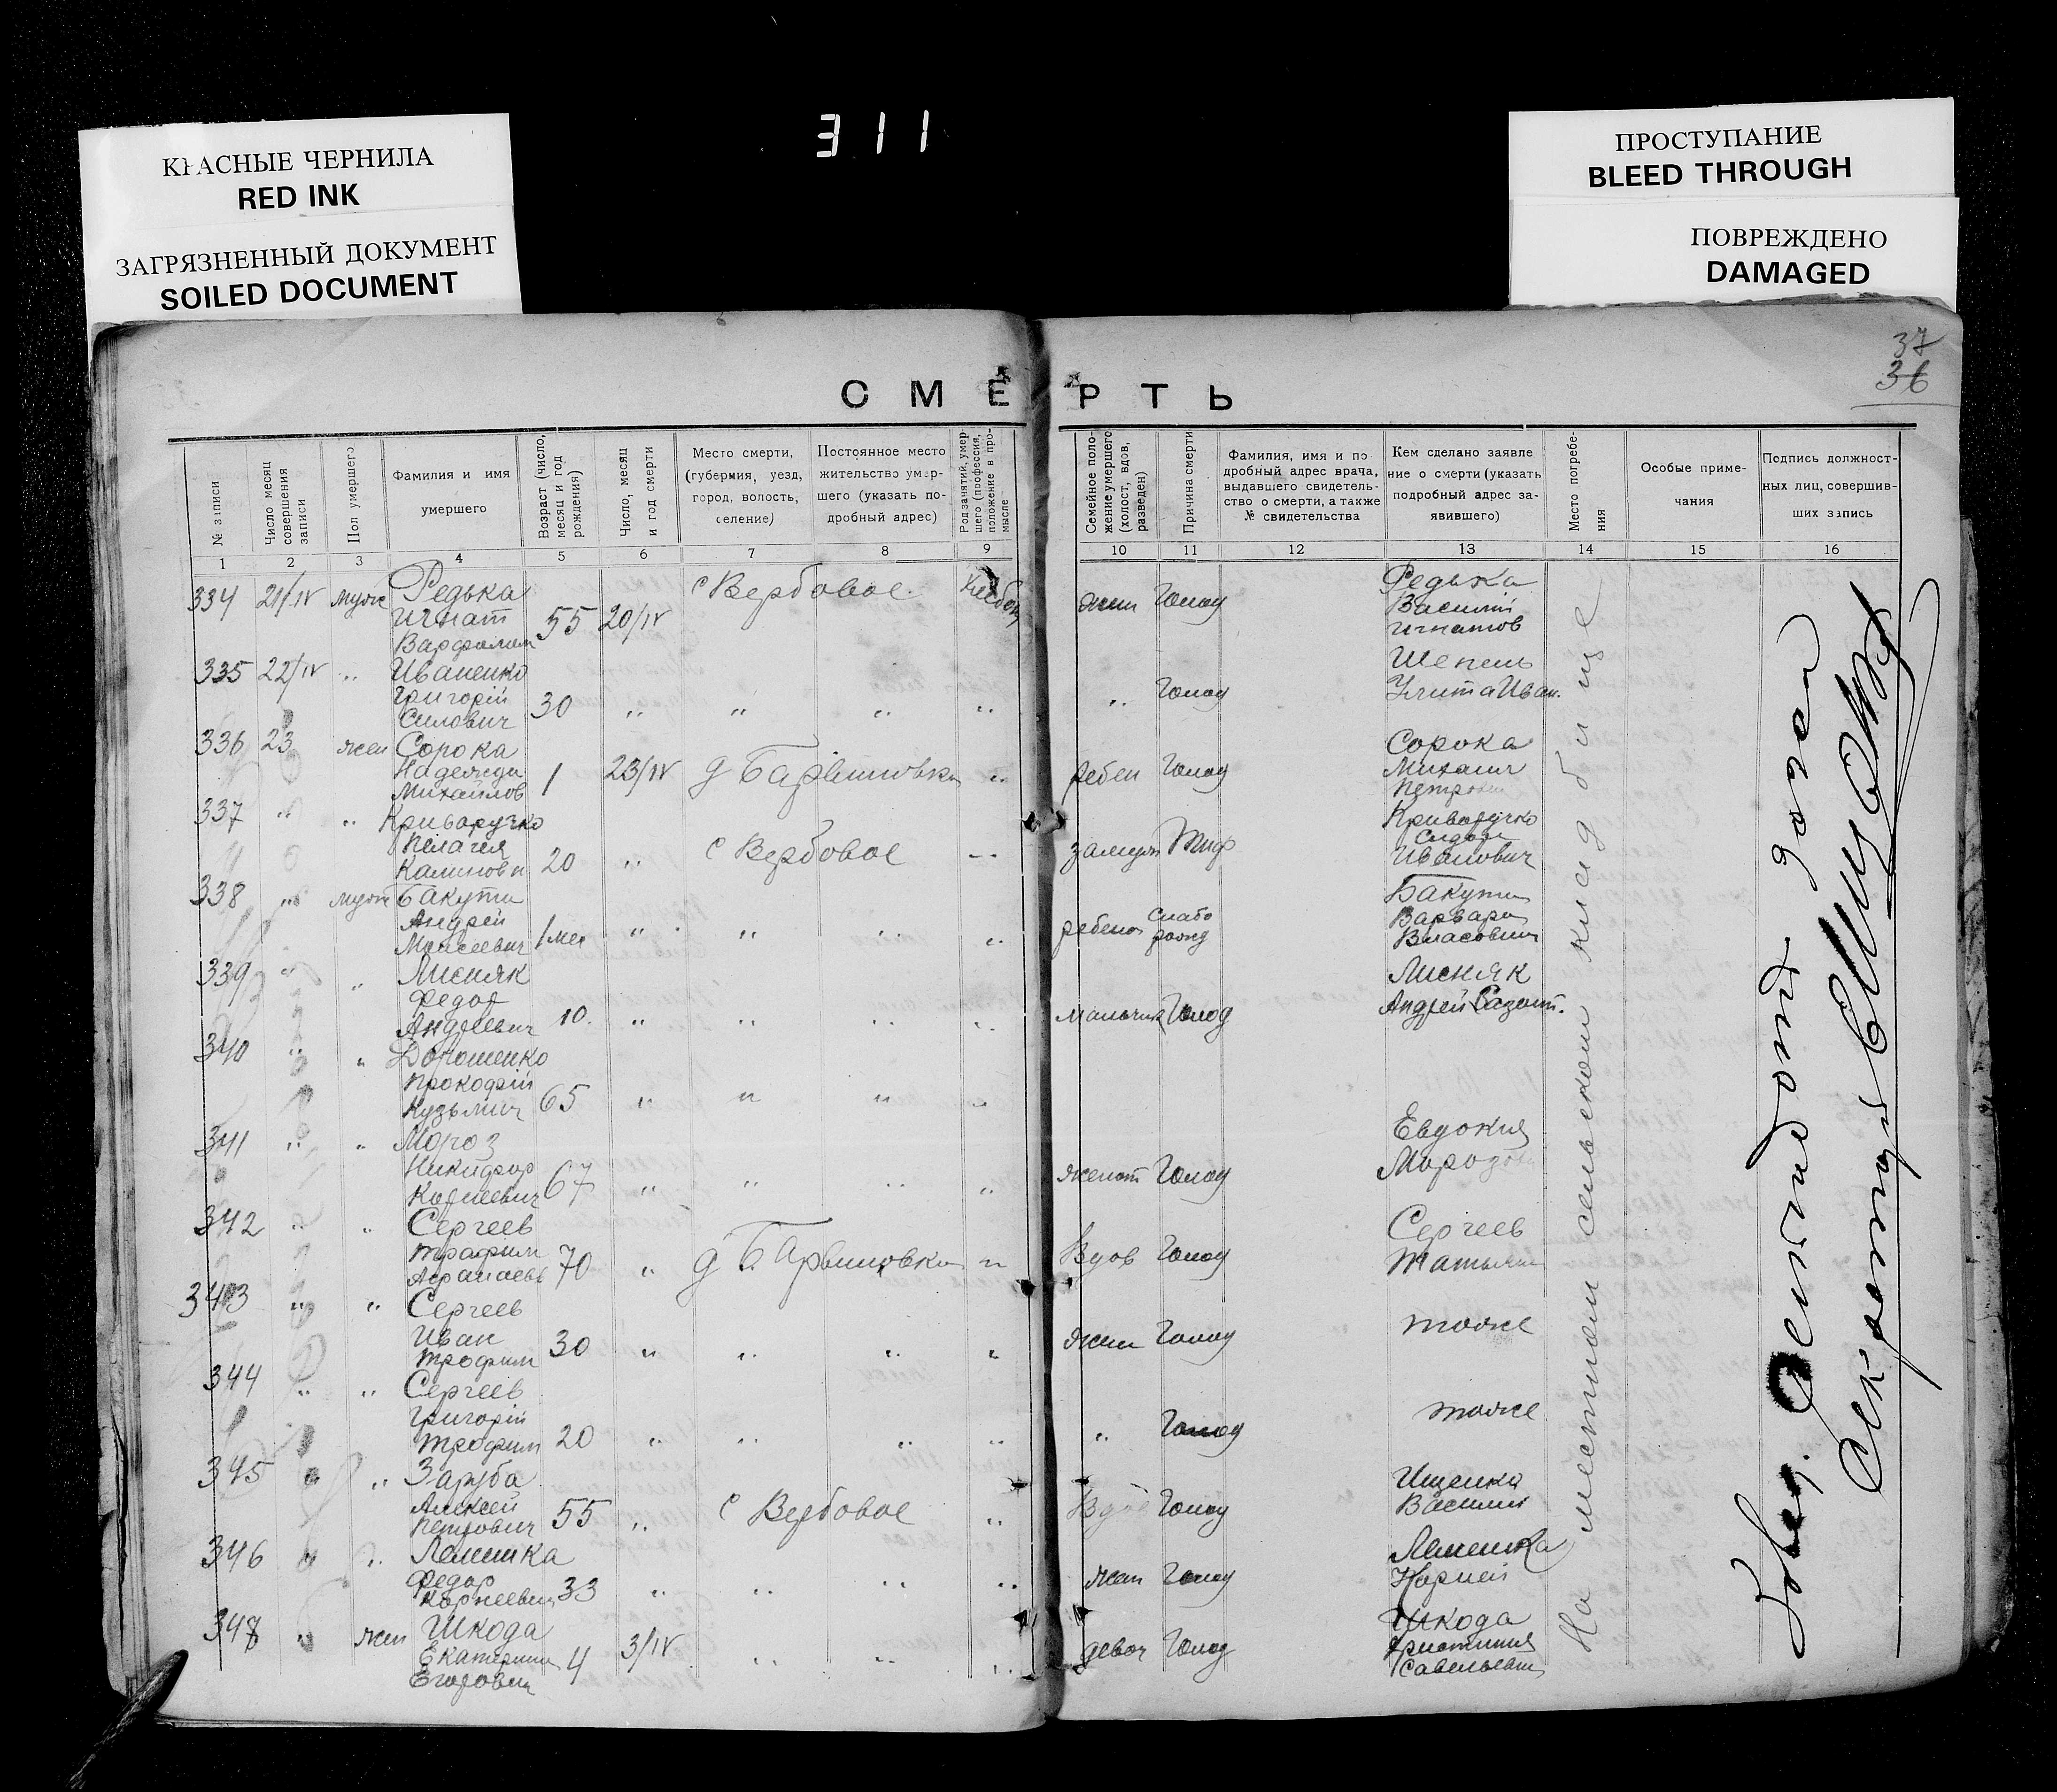 311
КРАСНЫЕ ЧЕРНИЛА
RED INK
ЗАГРЯЗНЕННЫЙ ДОКУМЕНТ
SOILED DOCUMENT
ПРОСТУПАНИЕ
BLEED THROUGH
ПОВРЕЖДЕНО
DAMAGED
37
36
СМЕРТЬ
№ записи
Число месяц совершения записи
Пол умершего
Фамилия и имя умершего
Возраст (число, месяц и год рождения)
Число, месяц и год смерти
Место смерти, (губерния, уезд, город, волость, селение)
Постоянное место жительство умершего (указать подробный адрес)
Род занятий, умершего (профессия, положение в промысле
Семейное положение умершего (холост, вдов, разведен)
Причина смерти
Фамилия, имя и подробный адрес врача, выдавшего свидетельство о смерти, а также № свидетельства
Кем сделано заявление о смерти (указать подробный адрес заявившего)
Место погребения
Особые примечания
Подпись должностных лиц, совершивших запись
1 2 3 4 5 6 7 8 9 10 11 12 13 14 15 16
334 21/IV муж Редька с Вербовое. Хлебоп жен Голод Редька
Игнат 55 20/IV Василий
Варфолом Игнатов
335 22/IV " Иваненко Шепель
Григорій 30 " " " " " Голод Улита Иван.
Силович
336 23 жен Сорока Сорока
Надежда 1 23/IV д Барвиновка " ребен Голод Михаил
Михайлов Петров
337 " " Криворучко Криворучко
Пелагея 20 " с Вербовое " замуж Тиф Сидор
Калинови Иванович
338 " муж Бакути Бакути
Андрей 1 мес " " " " ребенок Слабо Варвара
Моисеевич рожд Власович
339 " " Лисняк Лисняк
Федор 10. " " " " мальчик Голод Андрей
Андреевич
340 " " Дорошенко
Прокофій 65 " " " "
Кузьмич
341 " " Мороз Евдокия
Никифор 67 " " " " женат Голод Мороз
Корнеевич
342 " " Сергеев Сергеев
Трофим 70 " д Барвиновка " Вдов Голод Татьяна
343 " " Сергеев
Иван 30 " " " " жен Голод тоже
Трофим
344 " " Сергеев
Григорій 20 " " " " " Голод тоже
Трофим
345 " " Заруба Ищенко
Алексей 55 " с Вербовое " Голод Василий
Петрович
346 " " Лемешка Лемешка
Федор 33 " " " " жен Голод Корней
Корнеевич
347 " жен Шкода Шкода
Екатерина 4 3/IV " " " девоч Голод Христиния
Егоровн Савельевн
На местном сельском кладбище
Секретарь